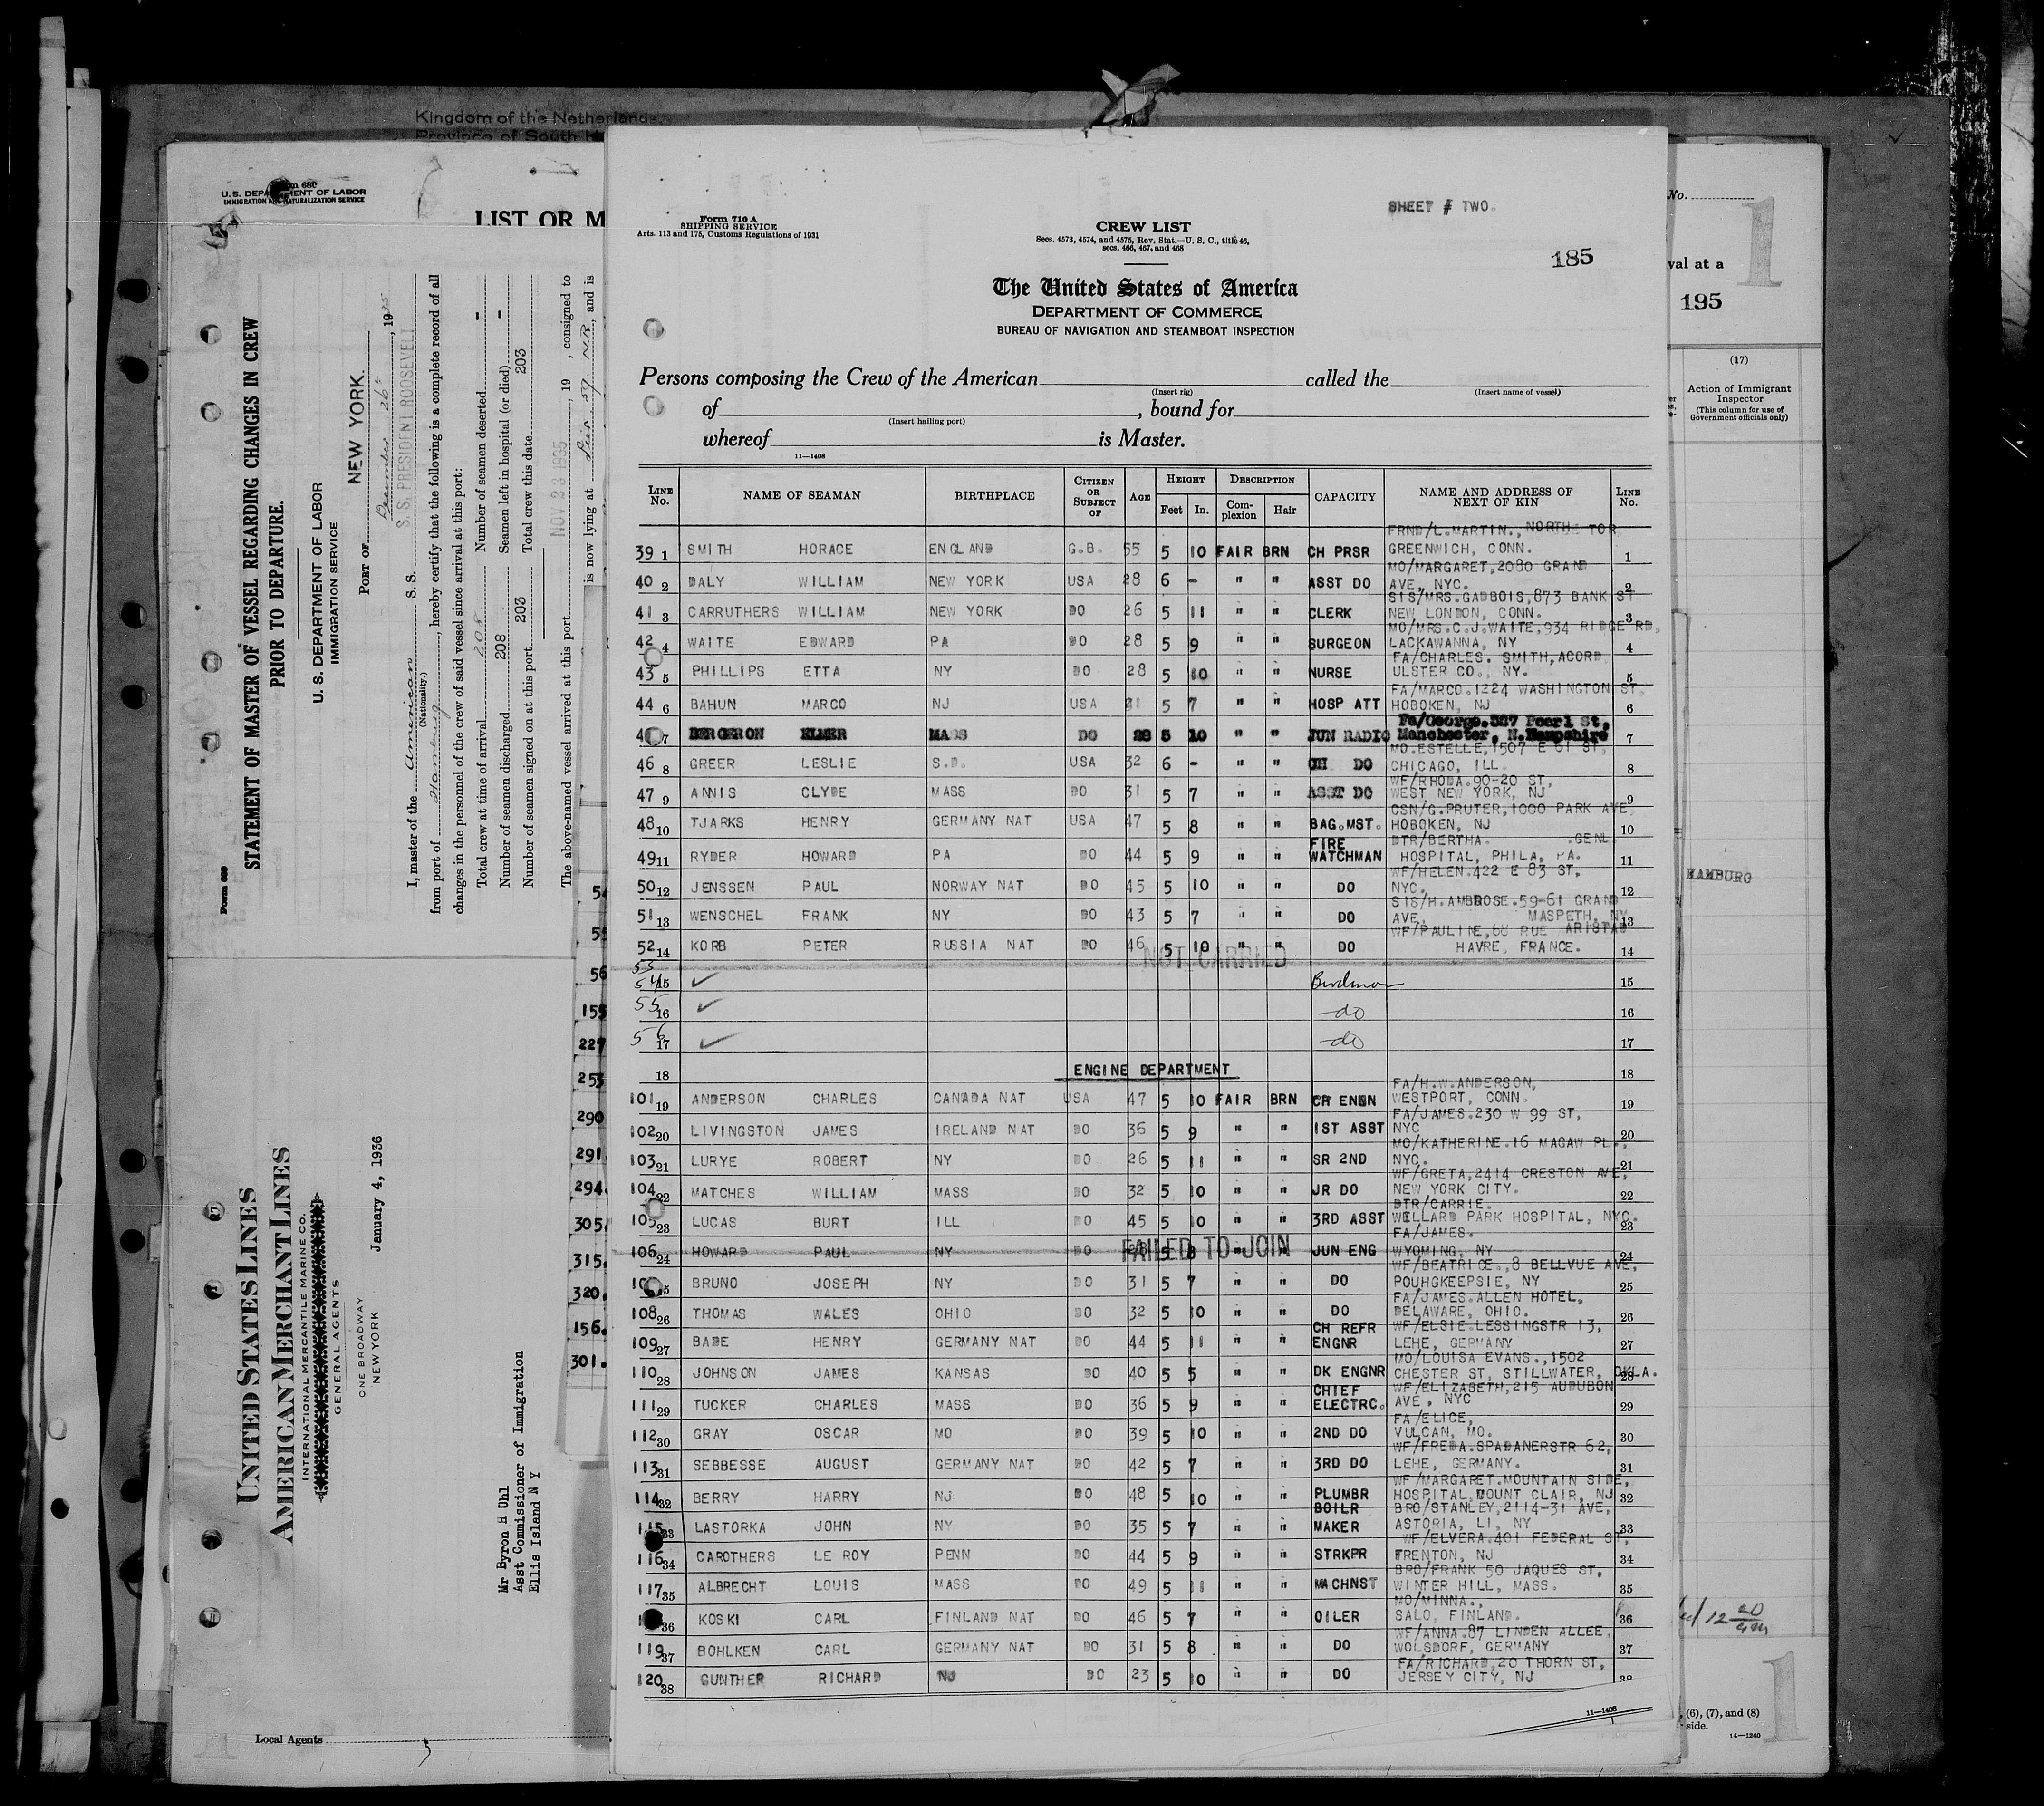 Kingdom of the Netherlands
Province of South H
U. S. DEPARTMENT OF LABOR
IMMIGRATION AND NATURALIZATION SERVICE
LIST OR M
Form 689
STATEMENT OF MASTER OF VESSEL REGARDING CHANGES IN CREW
PRIOR TO DEPARTURE.
U. S. DEPARTMENT OF LABOR
IMMIGRATION SERVICE
NEW YORK.
PORT OF
December 26, 1935
I, master of the American S. S. S. S. PRESIDENT ROOSEVELT
(Nationality.)
from port of Hamburg, hereby certify that the following is a complete record of all
changes in the personnel of the crew of said vessel since arrival at this port:
Total crew at time of arrival 208 Number of seamen deserted -
Number of seamen discharged 208 Seamen left in hospital (or died) -
Number of seamen signed on at this port 203 Total crew this date 203
NOV 23 1935
The above-named vessel arrived at this port , 19 , consigned to
is now lying at Pier 59 N.R., and is
UNITED STATES LINES
AMERICAN MERCHANT LINES
INTERNATIONAL MERCANTILE MARINE CO.
GENERAL AGENTS
ONE BROADWAY
NEW YORK
January 4, 1936
Mr Byron H Uhl
Asst Commissioner of Immigration
Ellis Island N Y
Local Agents
54
55
56
155
227
253
290
291.
294.
305.
315.
320.
156.
301.
SHEET # TWO.
Form 710 A
SHIPPING SERVICE
Arts. 113 and 175, Customs Regulations of 1931
CREW LIST
Secs. 4573, 4574, and 4575, Rev. Stat.—U. S. C., title 46,
secs. 466, 467, and 468
185
The United States of America
DEPARTMENT OF COMMERCE
BUREAU OF NAVIGATION AND STEAMBOAT INSPECTION
Persons composing the Crew of the American called the
(Insert rig) (Insert name of vessel)
of , bound for
(Insert hailing port)
whereof is Master.
11—1408
LINE No. NAME OF SEAMAN BIRTHPLACE CITIZEN OR SUBJECT OF AGE HEIGHT Feet In. DESCRIPTION Complexion Hair CAPACITY NAME AND ADDRESS OF NEXT OF KIN LINE No.
FRND/L.MARTIN., NORTH TOR
39 1 SMITH HORACE ENGLAND G.B. 55 5 10 FAIR BRN CH PRSR GREENWICH, CONN. 1
MO/MARGARET,2080 GRAND
40 2 DALY WILLIAM NEW YORK USA 28 6 - " " ASST DO AVE, NYC. 2
SIS/MRS.GADBOIS,873 BANK ST
41 3 CARRUTHERS WILLIAM NEW YORK DO 26 5 11 " " CLERK NEW LONDON, CONN. 3
MO/MRS.C.J.WAITE,934 RIDGE RD.
42 4 WAITE EDWARD PA DO 28 5 9 " " SURGEON LACKAWANNA, NY 4
FA/CHARLES. SMITH,ACORD
43 5 PHILLIPS ETTA NY DO 28 5 10 " " NURSE ULSTER CO., NY. 5
FA/MARCO.1224 WASHINGTON ST.
44 6 BAHUN MARCO NJ USA 21 5 7 " " HOSP ATT HOBOKEN, NJ 6
Fa/George.527 Pearl St,
7 BERGERON ELMER MASS DO 28 5 10 " " JUN RADIO Manchester, N.Hampshire 7
MO.ESTELLE,1507 E 61 ST,
46 8 GREER LESLIE S.D. USA 32 6 - " " CH DO CHICAGO, ILL. 8
WF/RHODA.90-20 ST,
47 9 ANNIS CLYDE MASS DO 31 5 7 " " ASST DO WEST NEW YORK, NJ 9
CSN/G.PRUTER,1000 PARK AVE,
48 10 TJARKS HENRY GERMANY NAT USA 47 5 8 " " BAG.MST. HOBOKEN, NJ 10
FIRE DTR/BERTHA. .GENL
49 11 RYDER HOWARD PA DO 44 5 9 " " WATCHMAN HOSPITAL, PHILA, PA. 11
WF/HELEN.422 E 83 ST,
50 12 JENSSEN PAUL NORWAY NAT DO 45 5 10 " " DO NYC. 12
SIS/H.AMBROSE.59-61 GRAND
51 13 WENSCHEL FRANK NY DO 43 5 7 " " DO AVE, MASPETH, NY 13
WF/PAULINE,68 RUE ARISTAD
52 14 KORB PETER RUSSIA NAT DO 46 5 10 " " DO HAVRE, FRANCE. 14
53 NOT CARRIED
54 15 ✓ 15
55 16 ✓ -do 16
56 17 ✓ -do 17
18 ENGINE DEPARTMENT 18
FA/H.W.ANDERSON,
101 19 ANDERSON CHARLES CANADA NAT USA 47 5 10 FAIR BRN CH ENGN WESTPORT, CONN. 19
FA/JAMES.230 W 99 ST,
102 20 LIVINGSTON JAMES IRELAND NAT DO 36 5 9 " " 1ST ASST NYC 20
MO/KATHERINE.16 MAGAW PL.,
103 21 LURYE ROBERT NY DO 26 5 11 " " SR 2ND NYC. 21
WF/GRETA,2414 CRESTON AVE,
104 22 MATCHES WILLIAM MASS DO 32 5 10 " " JR DO NEW YORK CITY. 22
DTR/CARRIE.
105 23 LUCAS BURT ILL DO 45 5 10 " " 3RD ASST WILLARD PARK HOSPITAL, NYC. 23
FA/JAMES.
106 24 HOWARD PAUL NY DO 28 5 8 FAILED TO JOIN JUN ENG WYOMING, NY 24
WF/BEATRICE.,8 BELLVUE AVE,
25 BRUNO JOSEPH NY DO 31 5 7 " " DO POUHGKEEPSIE, NY 25
FA/JAMES.ALLEN HOTEL,
108 26 THOMAS WALES OHIO DO 32 5 10 " " DO DELAWARE, OHIO. 26
CH REFR WF/ELSIE.LESSINGSTR 13,
109 27 BABE HENRY GERMANY NAT DO 44 5 11 " " ENGNR LEHE, GERMANY 27
MO/LOUISA EVANS.,1502
110 28 JOHNSON JAMES KANSAS DO 40 5 5 " " DK ENGNR CHESTER ST, STILLWATER, OKLA. 28
CHIEF WF/ELIZABETH,215 AUDUBON
111 29 TUCKER CHARLES MASS DO 36 5 9 " " ELECTRC. AVE, NYC 29
FA/ELICE,
112 30 GRAY OSCAR MO DO 39 5 10 " " 2ND DO VULCAN, MO. 30
WF/FREDA.SPADANERSTR 62,
113 31 SEBBESSE AUGUST GERMANY NAT DO 42 5 7 " " 3RD DO LEHE, GERMANY. 31
WF/MARGARET.MOUNTAIN SIDE,
114 32 BERRY HARRY NJ DO 48 5 10 " " PLUMBR HOSPITAL,MOUNT CLAIR, NJ 32
BOILR BRO/STANLEY,2114-31 AVE,
115 33 LASTORKA JOHN NY DO 35 5 7 " " MAKER ASTORIA, LI, NY 33
WF/ELVERA.401 FEDERAL ST,
116 34 CAROTHERS LE ROY PENN DO 44 5 9 " " STRKPR TRENTON, NJ 34
BRO/FRANK 50 JAQUES ST,
117 35 ALBRECHT LOUIS MASS DO 49 5 11 " " MACHNST WINTER HILL, MASS. 35
MO/MINNA.,
36 KOSKI CARL FINLAND NAT DO 46 5 7 " " OILER SALO, FINLAND. 36
WF/ANNA.87 LINDEN ALLEE.
119 37 BOHLKEN CARL GERMANY NAT DO 31 5 8 " " DO WOLSDORF, GERMANY 37
FA/RICHARD,20 THORN ST,
120 38 GUNTHER RICHARD NJ DO 23 5 10 " " DO JERSEY CITY, NJ 38
11—1408
No.
1
val at a
195
(17)
Action of Immigrant
Inspector
(This column for use of
Government officials only)
HAMBURG
1
, (6), (7), and (8)
side.
14—1240